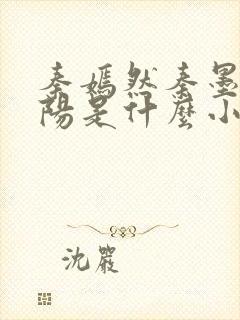 秦嫣然秦墨
陽是什麼小
沈嚴